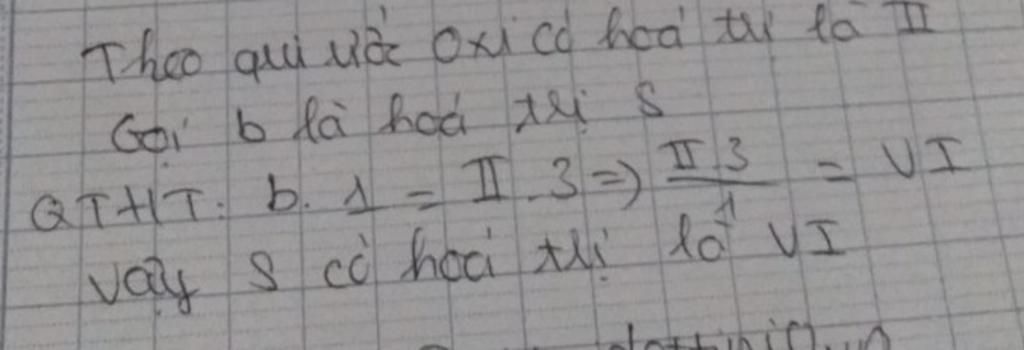 Theo qui ước Oxi có hoá trị là II
Gọi b là hoá trị S
QTHT: b. 1 = II . 3 => II.3/1 = VI
Vậy S có hoá trị là VI